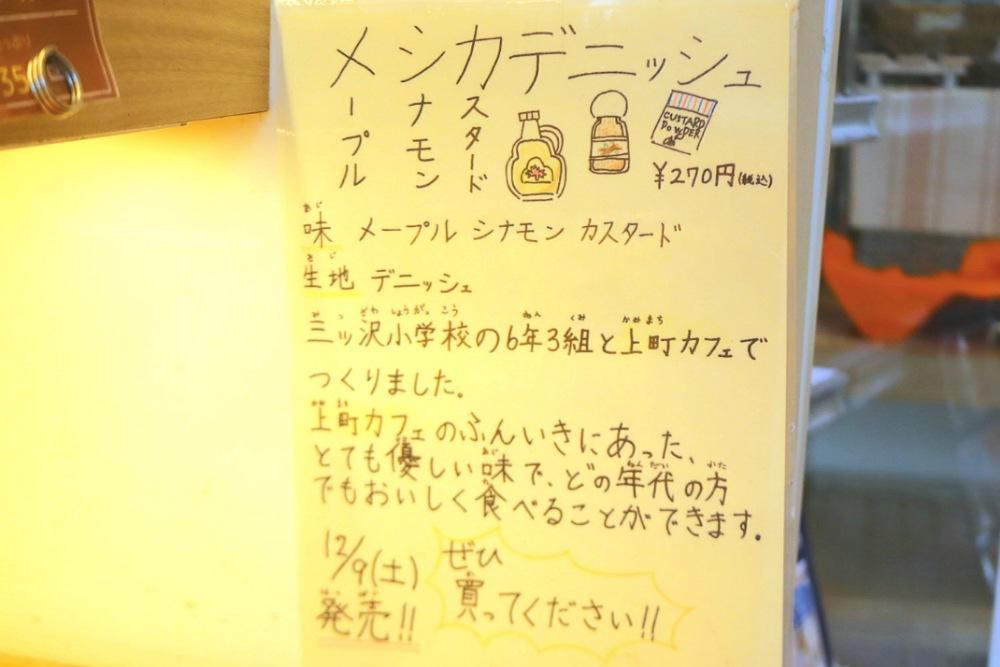 35
メシカデニッシュ
メープル
シナモン
カスタード
CUSTARD
POWDER
¥270円(税込)
味 メープル シナモン カスタード
生地 デニッシュ
三ッ沢小学校の6年3組と上町カフェで
つくりました。
上町カフェのふんいきにあった、
とても優しい味で、どの年代の方
でもおいしく食べることができます。
12/9(土)
発売!!
ぜひ
買ってください!!